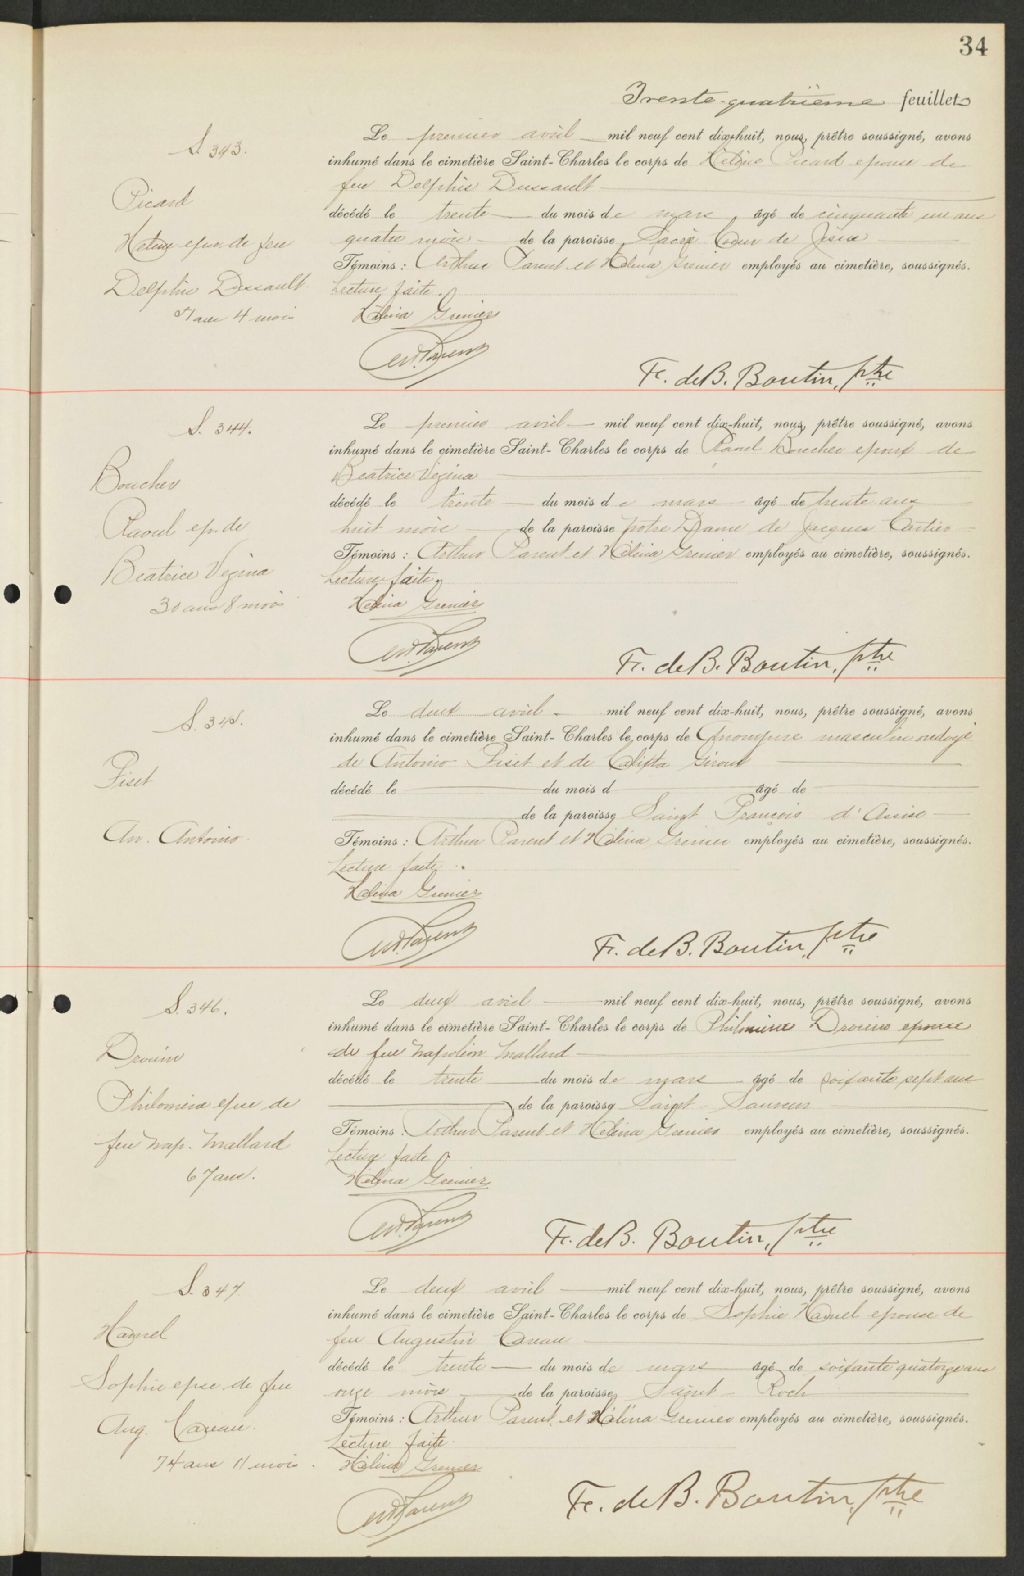 34
Trente-quatrième feuillet
S. 343.
Picard
epse. de feu
Delphis Dussault
ans 4 mois
Le premier avril mil neuf cent dix-huit, nous, prêtre soussigné, avons
inhumé dans le cimetière Saint-Charles le corps de Picard epouse de
feu Delphis Dussault
décédé le trente du mois de mars, âgé de cinquante ans
quatre mois de la paroisse Sacré Cœur de Jésus
Témoins : Arthur Parent et Hélèna Grenier employés au cimetière, soussignés.
Lecture faite.
Hélèna Grenier
Art. Parent
F. de B. Boutin, ptre
S. 344.
Boucher
Raoul ep. de
Beatrice Vezina
30 ans 8 mois
Le premier avril mil neuf cent dix-huit, nous, prêtre soussigné, avons
inhumé dans le cimetière Saint-Charles le corps de Raoul Boucher epoux de
Beatrice Vezina
décédé le trente du mois de mars âgé de trente ans
huit mois de la paroisse Notre Dame de Jacques Cartier
Témoins : Arthur Parent et Hélèna Grenier employés au cimetière, soussignés.
Lecture faite.
Hélèna Grenier
Art. Parent
F. de B. Boutin, ptre
S. 345.
Piset
An. Antonio
Le deux avril mil neuf cent dix-huit, nous, prêtre soussigné, avons
inhumé dans le cimetière Saint-Charles le corps de Anonyme masculin ondoyé
de Antonio Piset et de Calixta Giroux
décédé le du mois d âgé de
de la paroisse Saint François d'Assise
Témoins : Arthur Parent et Hélèna Grenier employés au cimetière, soussignés.
Lecture faite.
Hélèna Grenier
Art. Parent
F. de B. Boutin, ptre
S. 346.
Drouin
Philomène epse de
feu Nap. Mallard
67 ans.
Le deux avril mil neuf cent dix-huit, nous, prêtre soussigné, avons
inhumé dans le cimetière Saint-Charles le corps de Philomène Drouin epouse
de feu Napoléon Mallard
décédé le trente du mois de mars âgé de soixante sept ans
de la paroisse Saint Sauveur
Témoins : Arthur Parent et Hélèna Grenier employés au cimetière, soussignés.
Lecture faite
Hélèna Grenier
Art. Parent
F. de B. Boutin, ptre
S. 347
Hamel
Sophie epse. de feu
Aug. Careau
74 ans 11 mois.
Le deux avril mil neuf cent dix-huit, nous, prêtre soussigné, avons
inhumé dans le cimetière Saint-Charles le corps de Sophie Hamel epouse de
feu Augustin Careau
décédé le trente du mois de mars âgé de soixante quatorze ans
onze mois de la paroisse Saint Roch
Témoins : Arthur Parent et Hélèna Grenier employés au cimetière, soussignés.
Lecture faite.
Hélèna Grenier
Art. Parent
F. de B. Boutin, ptre